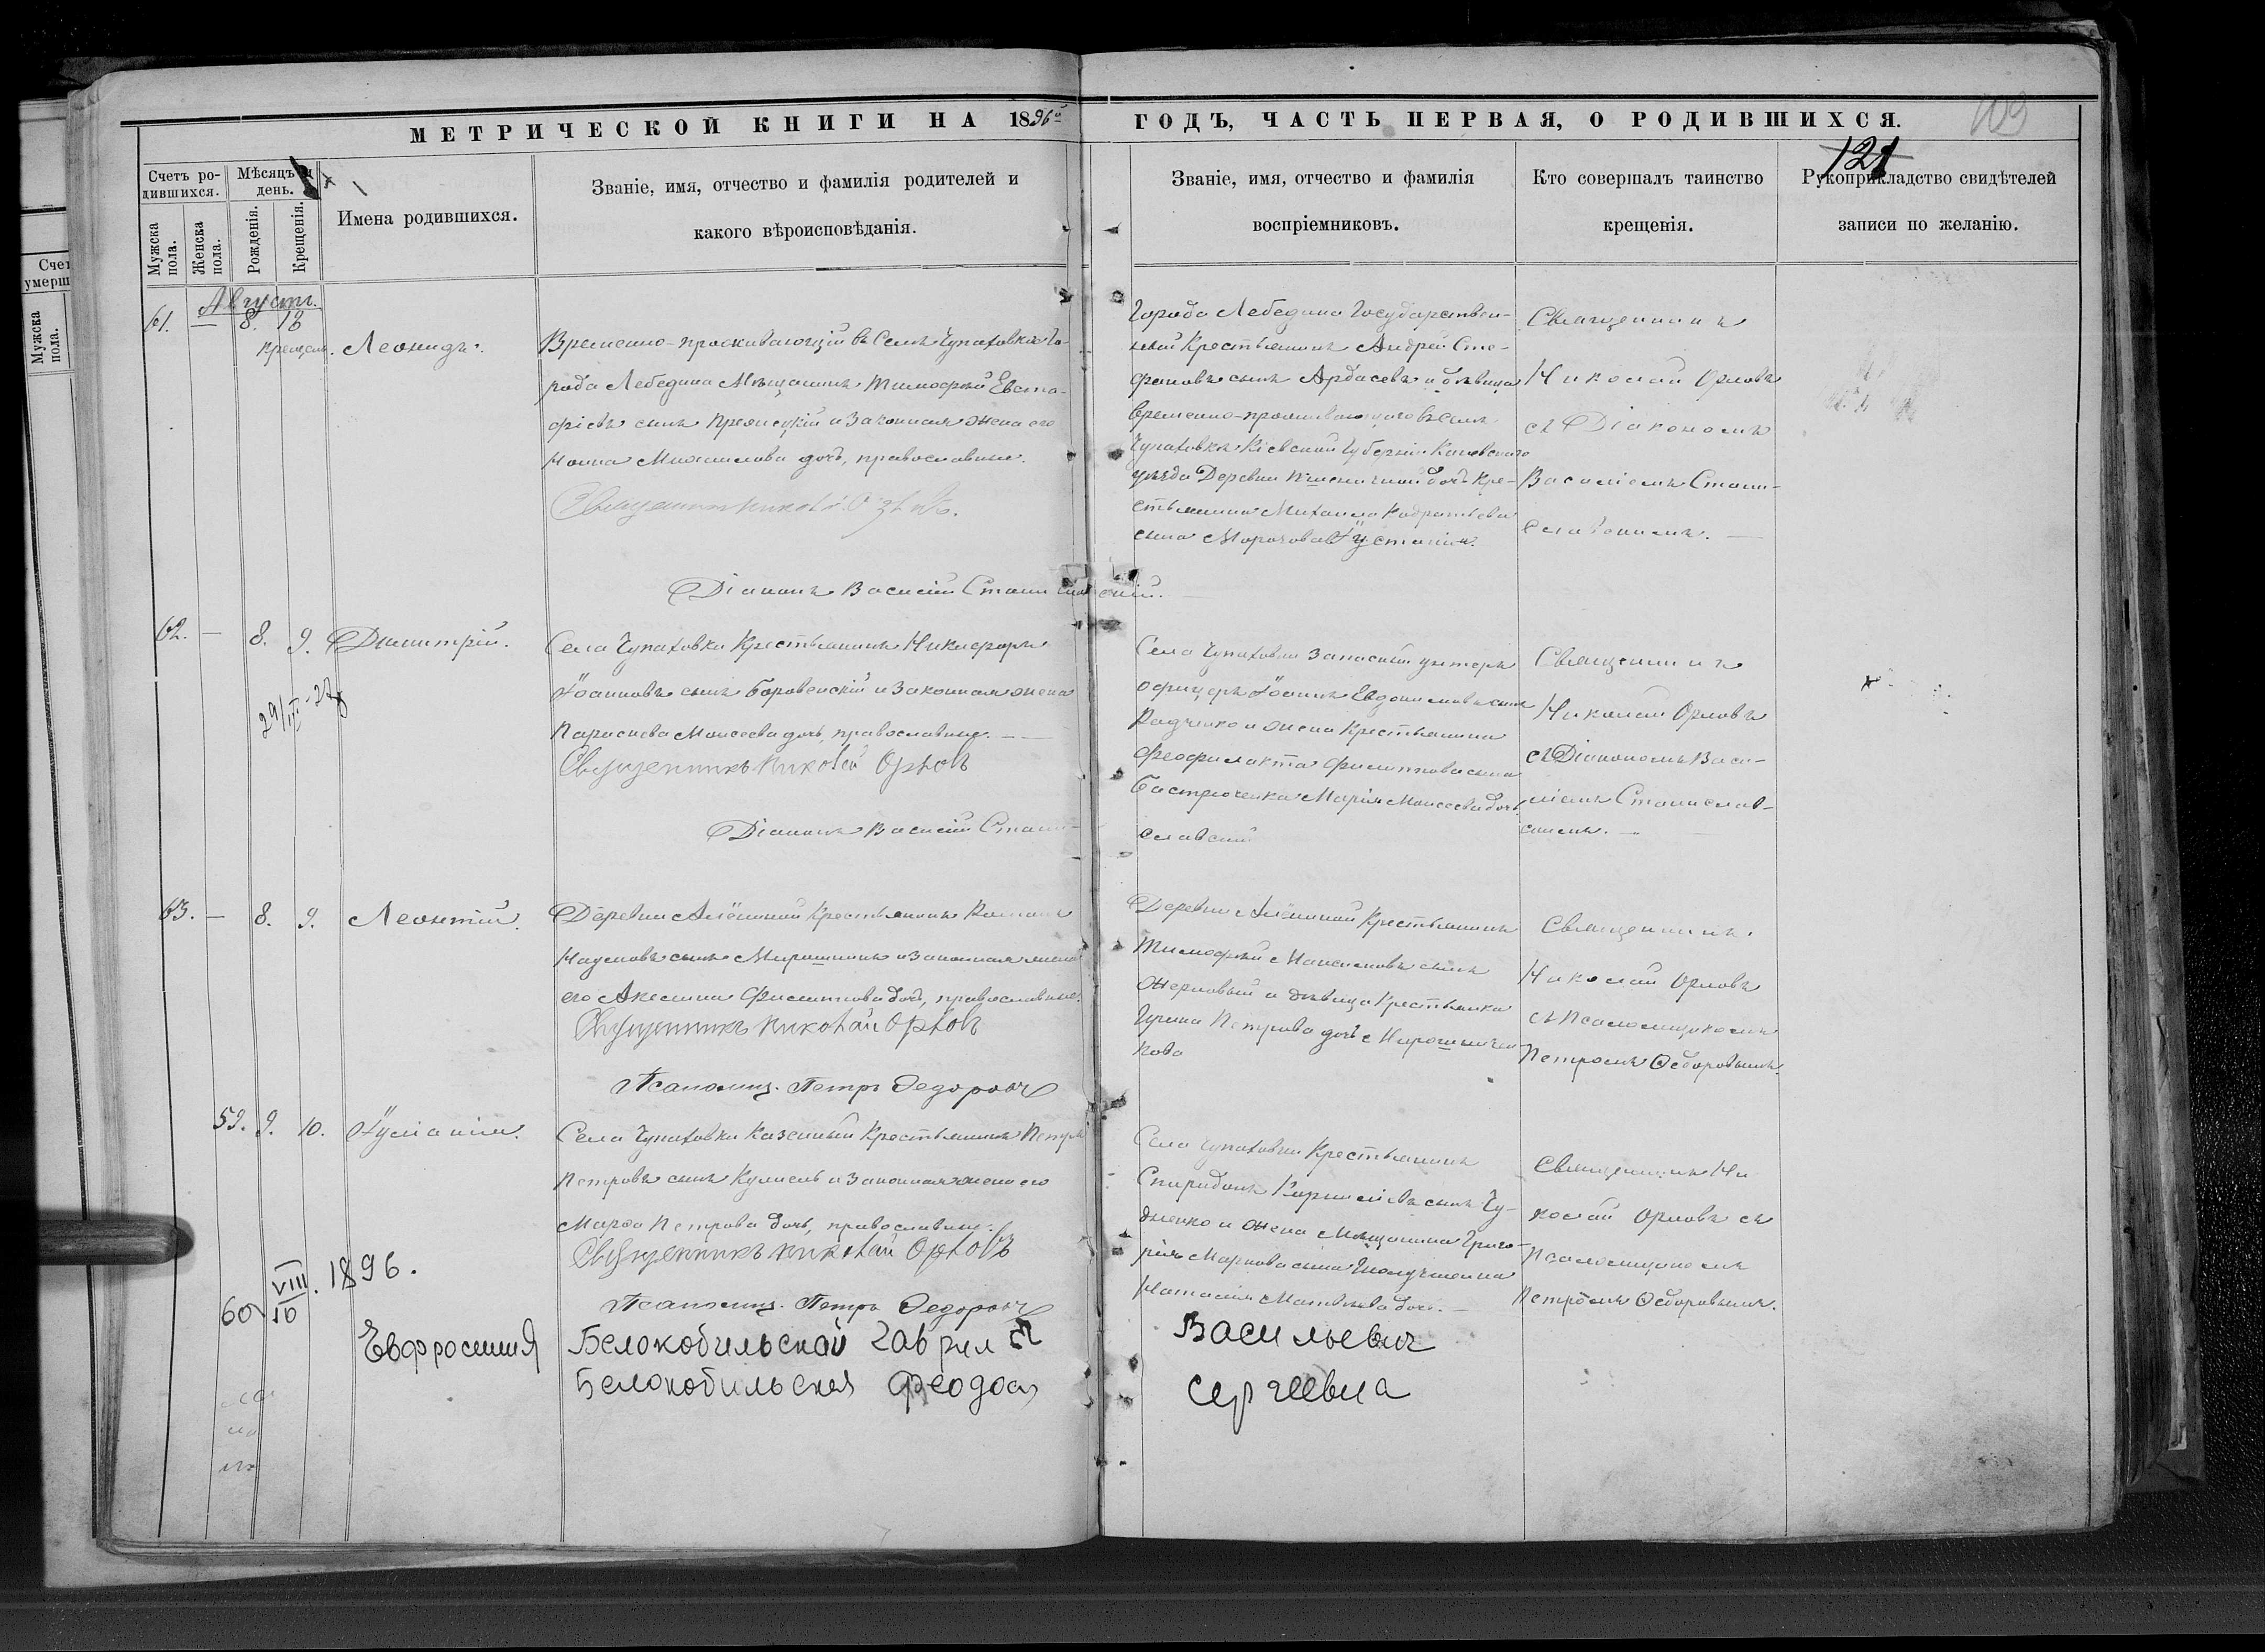 МЕТРИЧЕСКОЙ КНИГИ НА 1896й
ГОДЪ, ЧАСТЬ ПЕРВАЯ, О РОДИВШИХСЯ.
109
121
Счетъ родившихся.
Мужска пола.
Женска пола.
Мѣсяцъ и день.
Рожденія.
Крещенія.
Имена родившихся.
Званіе, имя, отчество и фамилія родителей и
какого вѣроисповѣданія.
Званіе, имя, отчество и фамилія
воспріемниковъ.
Кто совершалъ таинство
крещенія.
Рукоприкладство свидѣтелей
записи по желанію.
Счет
умерш
Мужска пола.
Августъ.
61. — 8. 13
крещенъ. Леонидъ.
Временно-проживающій въ Селѣ Чупаховкѣ Го-
рода Лебедина Мѣщанинъ Тимофѣй Евста-
фіевъ сынъ и законная жена его
Михаилова дочь, православные.
Священникъ Николай Орловъ.
Діаконъ Василій Станиславскій.
Города Лебедина Государствен-
ный Крестьянинъ Андрей Сте-
фановъ сынъ Ардасевъ и дѣвица
временно-проживающаго въ Селѣ
Чупаховкѣ Кіевской Губерніи Каневскаго
уѣзда Деревни дочь Кре-
стьянина Михаила
сына Морозова Іустинія.
Священникъ
Николай Орловъ
съ Діакономъ
Василіемъ Стани-
славскимъ.
62. — 8. 9. Димитрій.
29/III-27
Села Чупаховки Крестьянинъ Никифоръ
Іоанновъ сынъ Боровенскій и законная жена
Параскева Моисеева дочь, православные.
Священникъ Николай Орловъ
Діаконъ Василій Стани-
славскій
Села Чупаховки Запасный унтеръ
офицеръ Іоаннъ Евдокимовъ сынъ
Радченко и жена Крестьянина
Феофилакта Филиппова сына
Бастрюченка Марія Моисеева дочь.
Священникъ
Николай Орловъ
съ Діакономъ Васи-
ліемъ Станислав-
скимъ.
63. — 8. 9. Леонтій.
Деревни Алёшиной Крестьянинъ Романъ
Наумовъ сынъ Мирошникъ и законная жена
его Аксинія Филиппова дочь, православные.
Священникъ Николай Орловъ
Псаломщ. Петръ Федоровъ
Деревни Алёшиной Крестьянинъ
Тимофѣй Максимовъ сынъ
Жерновый и дѣвица Крестьянка
Ирина Петрова дочь Мирошничен-
кова
Священникъ
Николай Орловъ
съ Псаломщикомъ
Петромъ Ѳедоровымъ.
59. 9. 10. Іуліанія.
Села Чупаховки Казенный Крестьянинъ Петръ
Петровъ сынъ и законная жена его
Марѳа Петрова дочь, православные.
Священникъ Николай Орловъ
Псаломщ. Петръ Федоровъ
Села Чупаховки Крестьянинъ
Спиридонъ Корниліевъ сынъ Чу-
дненко и жена Мѣщанина Григо-
рія Маркова сына
Наталія Матвѣева дочь.
Священникъ Ни
колай Орловъ съ
Псаломщикомъ
Петромъ Ѳедоровымъ.
60 VIII/10. 1896.
Евфросиния
Белокобильской Гаврил
Васильевич
Белокобильская Феодос
Сергеевна